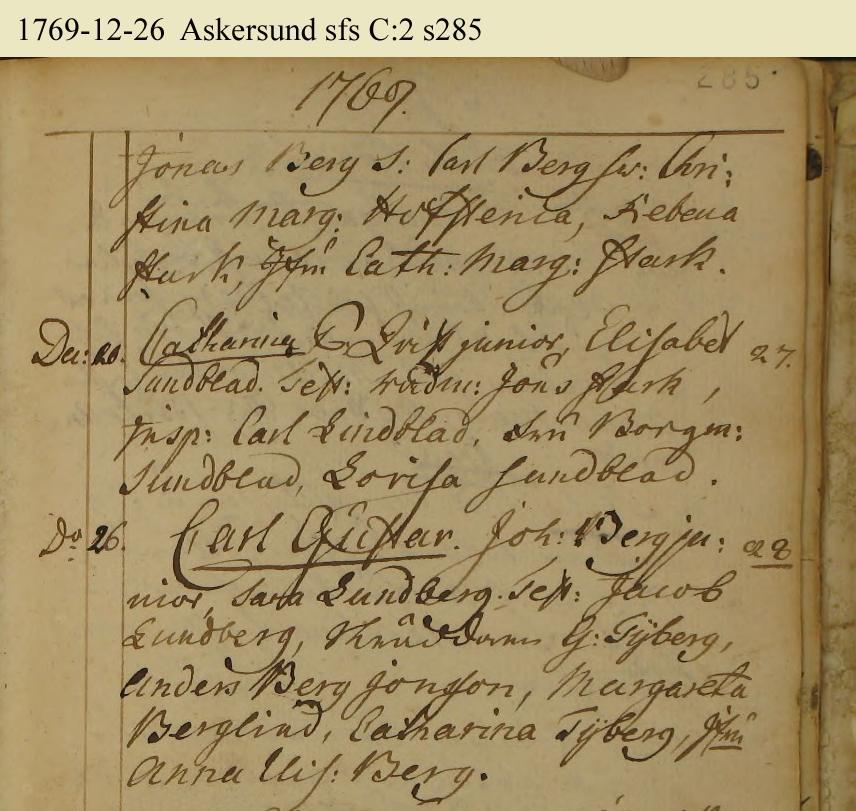 1769-12-26 Askersund sfs C:2 s285
285.
1769.
Jonas Berg S: Carl Berg sw: Chri:
stina Marg: Hofstenia, Rebecca
Stark, Jfru Cath: Marg: Stark.
Dec: 20. Catharina C Qvist junior, Elisabet 27.
Sundblad. Test: Rådm: Jöns Stark,
Insp: Carl Lindblad, Fru Borgm:
Sundblad, Lovisa Sundblad.
Do 26. Carl Gustav. Joh: Berg ju: 28
nior, Sara Lundberg. Test: Jacob
Lundberg, G: Tÿberg,
Anders Berg Jonson, Margareta
Berglind, Catharina Tÿberg, Jfru
Anna Lis: Berg.